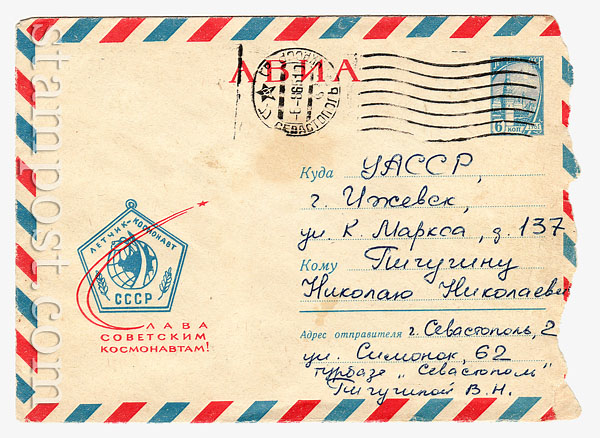 АВИА
СЕВАСТОПОЛЬ
6 коп
Куда УАССР,
г. Ижевск,
ул. К. Маркса, д. 137
Кому Пичугину
Николаю Николаевич
ЛЕТЧИК-КОСМОНАВТ
СССР
СЛАВА
СОВЕТСКИМ
КОСМОНАВТАМ!
Адрес отправителя г. Севастополь, 2
ул. Симонок, 62
турбаза "Севастополь"
Пичугиной В. Н.
stampost.com